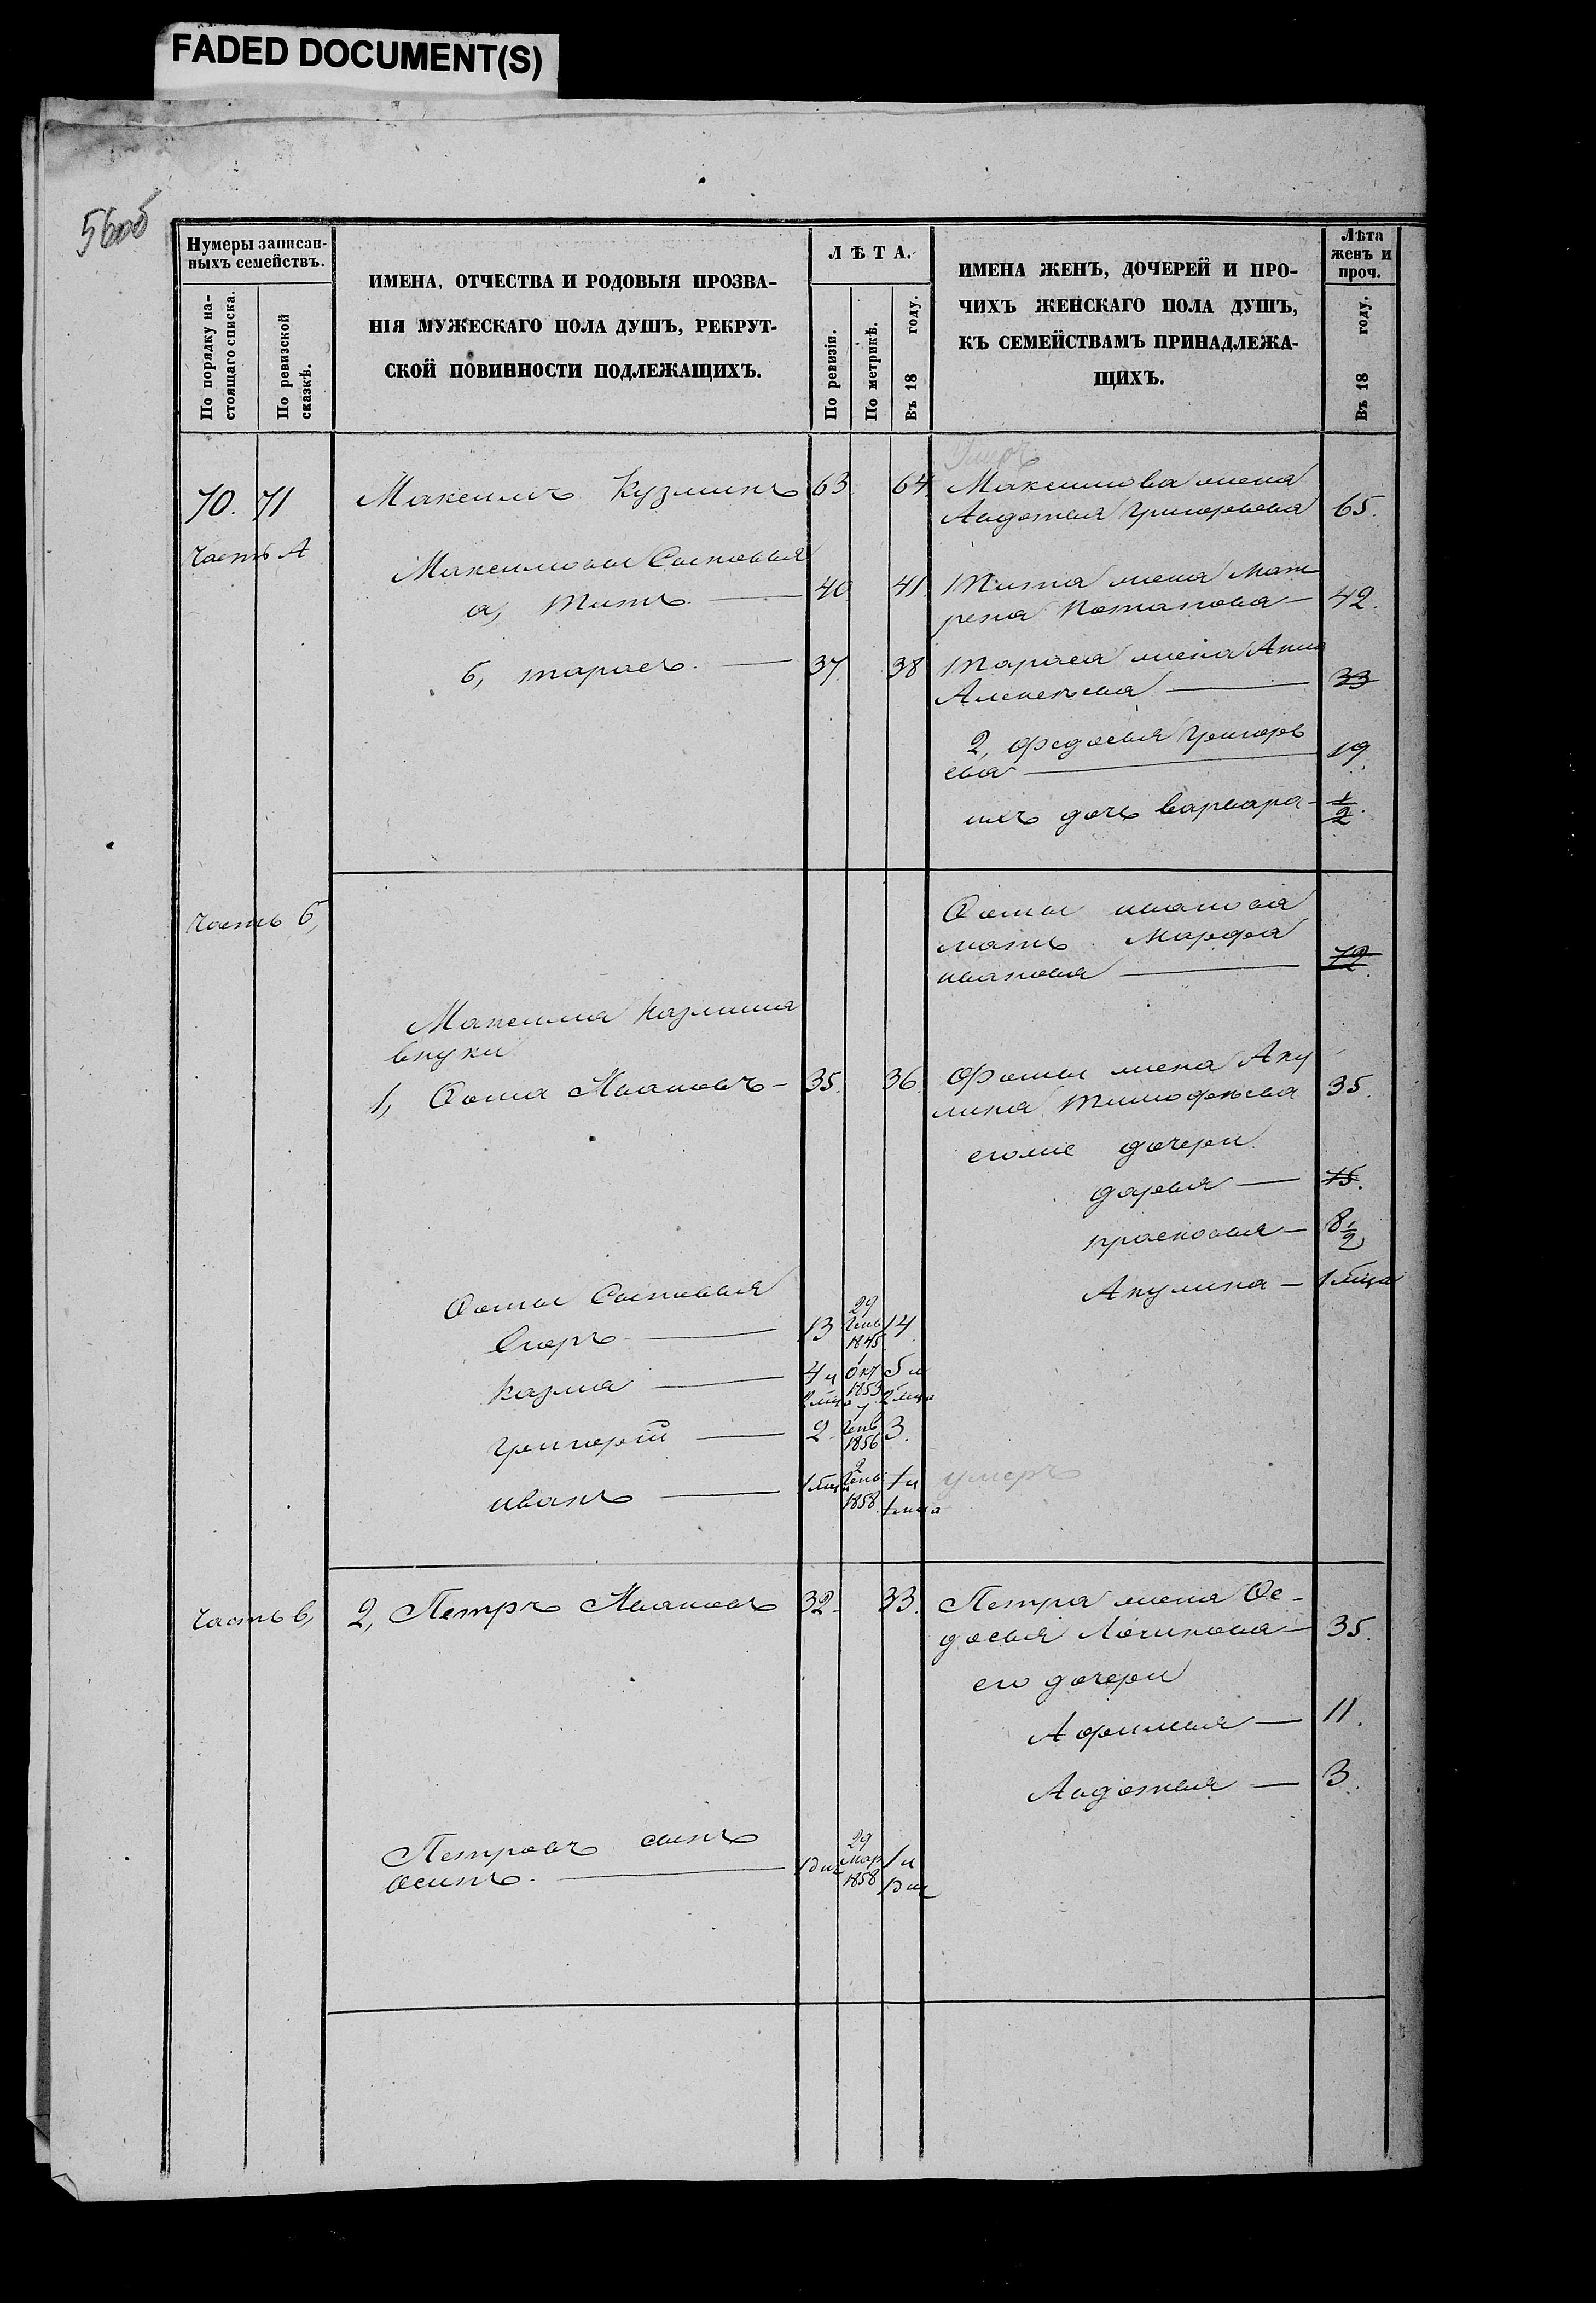 FADED DOCUMENT(S)
56об
Нумеры записан-
ныхъ семействъ.
По порядку на-
стоящаго списка.
По ревизской
сказкѣ.
ИМЕНА, ОТЧЕСТВА И РОДОВЫЯ ПРОЗВА-
НІЯ МУЖЕСКАГО ПОЛА ДУШЪ, РЕКРУТ-
СКОЙ ПОВИННОСТИ ПОДЛЕЖАЩИХЪ.
ЛѢТА.
По ревизіи.
По метрикѣ.
Въ 18 году.
ИМЕНА ЖЕНЪ, ДОЧЕРЕЙ И ПРО-
ЧИХЪ ЖЕНСКАГО ПОЛА ДУШЪ,
КЪ СЕМЕЙСТВАМЪ ПРИНАДЛЕЖА-
ЩИХЪ.
Лѣта
женъ и
проч.
Въ 18 году.
умеръ
70. 71 Максимъ Кузминъ 63 64 Максимова жена
Авдотья Григорьева 65.
Часть А
Максимовы Сыновья
а, Титъ — 40 41. Тита жена Мат
рена Потапова — 42.
б, тарасъ. — 37 38 Тараса жена Анна
Алексѣева — 33
2, Федосья Григорь
ева — 19
ихъ дочь варвара — 1/2.
Часть б, Ѳомы иванова
мать Марфа
иванова — 72
Максима Казмина
внуки
1, Ѳома Ивановъ — 35. 36. Фомы жена Аку
лина Тимофѣева 35.
его же дочери
дарья — 15.
прасковья — 8 1/2
Акулина — 1 мца
Ѳомы Сыновья
Егоръ — 13 29 Генв 1845 14
Казма — 4 и 2 мца 1 окт 1853 5 и 2 мца
Григорій — 2. 7 Генв 1856 3.
иванъ — 1 мца 2 Генв 1858 1 и 1 мца умеръ
Часть в, 2, Петръ Ивановъ 32. 33. Петра жена Ѳе-
досья Логинова — 35.
его дочери
Афимья — 11.
Авдотья — 3.
Петровъ сынъ
Осипъ. — 1 дня 29 Мар 1858 1 и 1 дня